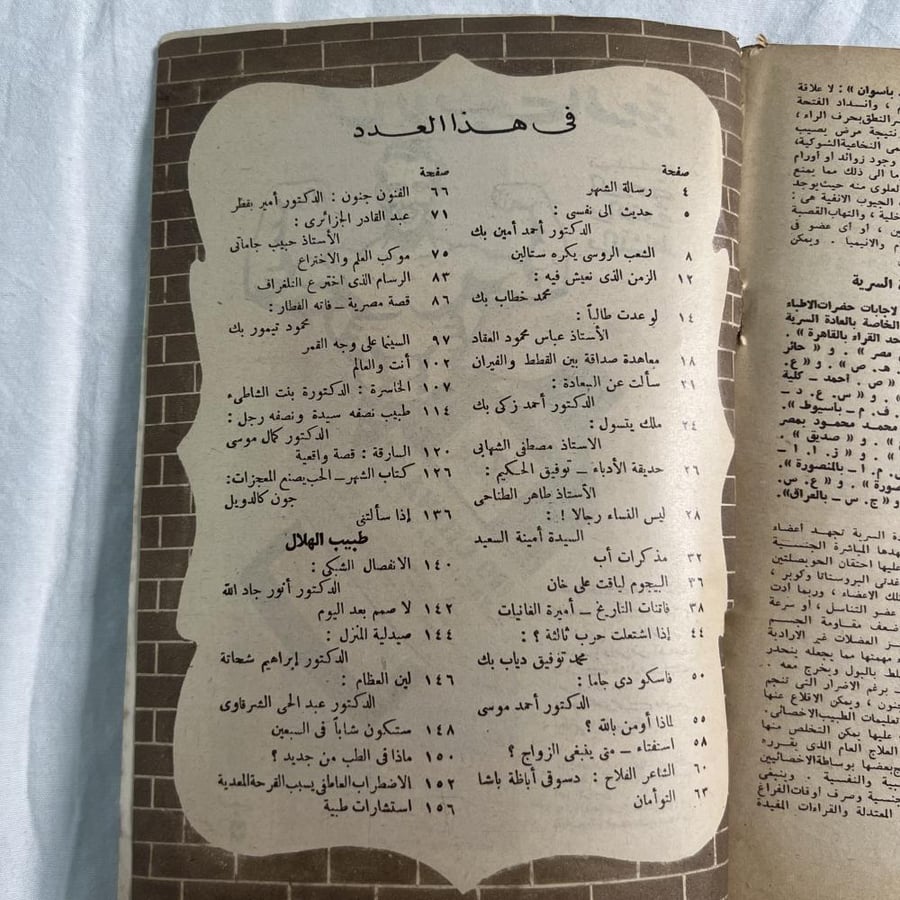 فى هذا العدد
صفحة
٤ رسالة الشهر
٥ حديث الى نفسى :
الدكتور أحمد أمين بك
٨ الشعب الروسى يكره ستالين
١٢ الزمن الذى نعيش فيه :
محمد خطاب بك
١٤ لو عدت طالباً :
الأستاذ عباس محمود العقاد
١٨ معاهدة صداقة بين القطط والفيران
٢١ سألت عن السعادة :
الدكتور أحمد زكى بك
٢٤ ملك يتسول :
الاستاذ مصطفى الشهابى
٢٦ حديقة الأدباء ـ توفيق الحكيم :
الأستاذ طاهر الطناحى
٢٨ ليس النساء رجالا ! :
السيدة أمينة السعيد
٣٢ مذكرات أب
٣٦ البيجوم لياقت على خان
٣٨ فاتنات التاريخ ـ أميرة الغانيات
٤٤ إذا اشتعلت حرب ثالثة ؟ :
محمد توفيق دياب بك
٥٠ فاسكو دى جاما :
الدكتور أحمد موسى
٥٥ لماذا أومن بالله ؟
٥٨ استفتاء ـ متى ينبغى الزواج ؟
٦٠ الشاعر الفلاح : دسوقى أباظة باشا
٦٣ التوأمان
صفحة
٦٦ الفنون جنون : الدكتور أمير بقطر
٧١ عبد القادر الجزائرى :
الأستاذ حبيب جاماتى
٧٥ موكب العلم والاختراع
٨٣ الرسام الذى اخترع التلغراف
٨٦ قصة مصرية ـ فاته القطار :
محمود تيمور بك
٩٧ السينما على وجه القمر
١٠٢ أنت والعالم
١٠٧ الخاسرة : الدكتورة بنت الشاطىء
١١٤ طبيب نصفه سيدة ونصفه رجل :
الدكتور كمال موسى
١٢٠ السارقة : قصة واقعية
١٢٦ كتاب الشهر ـ الحب يصنع المعجزات :
جون كالدويل
١٣٦ إذا سألتنى
طبيب الهلال
١٤٠ الانفصال الشبكى :
الدكتور أنور جاد الله
١٤٢ لا صمم بعد اليوم
١٤٤ صيدلية المنزل :
الدكتور إبراهيم شحاتة
١٤٦ لين العظام :
الدكتور عبد الحى الشرقاوى
١٤٨ ستكون شاباً فى السبعين
١٥٠ ماذا فى الطب من جديد ؟
١٥٢ الاضطراب العاطفى يسبب القرحة المعدية
١٥٦ استشارات طبية
باسوان » : لا علاقة
، وانسداد الفتحة
النطق بحرف الراء ،
نتيجة مرض يصيب
النخاعية الشوكية ،
وجود زوائد او أورام
ما الى ذلك مما يمنع
العلوى منه حيث يوجد
الجيوب الانفية هى :
، والتهاب القصبة
، او اى عضو فى
والانيميا . ويمكن
السرية
لاجابات حضرات الاطباء
الخاصة بالعادة السرية
القراء بالقاهرة » .
مصر » . و « حائر
هـ . ص » . و « ع .
« ص . احمد ـ كلية
. و « س . ع . د ـ
ف . م ـ باسيوط » .
محمد محمود بمصر
. و « صديق » .
و « ز . ا . ا ـ
م . ا ـ بالمنصورة » .
و « ع . س .
و « ج . س ـ بالعراق » .
السرية تجهد أعضاء
المباشرة الجنسية
عليها احتقان الحويصلتين
البروستاتا وكوبر ،
الاعضاء ، وربما ادت
عضو التناسل ، أو سرعة
ضعف مقاومة الجسم
العضلات غير الارادية
مهمتها مما يجعله ينحدر
بالبول ويخرج معه ..
برغم الاضرار التى تنجم
، ويمكن الاقلاع عنها
تعليمات الطبيب الاخصائى .
عليها يمكن التخلص منها
العلاج العام الذى يقرره
بعضها بوساطة الاخصائيين
والنفسية . وينبغى
وصرف اوقات الفراغ
المعتدلة والقراءات المفيدة